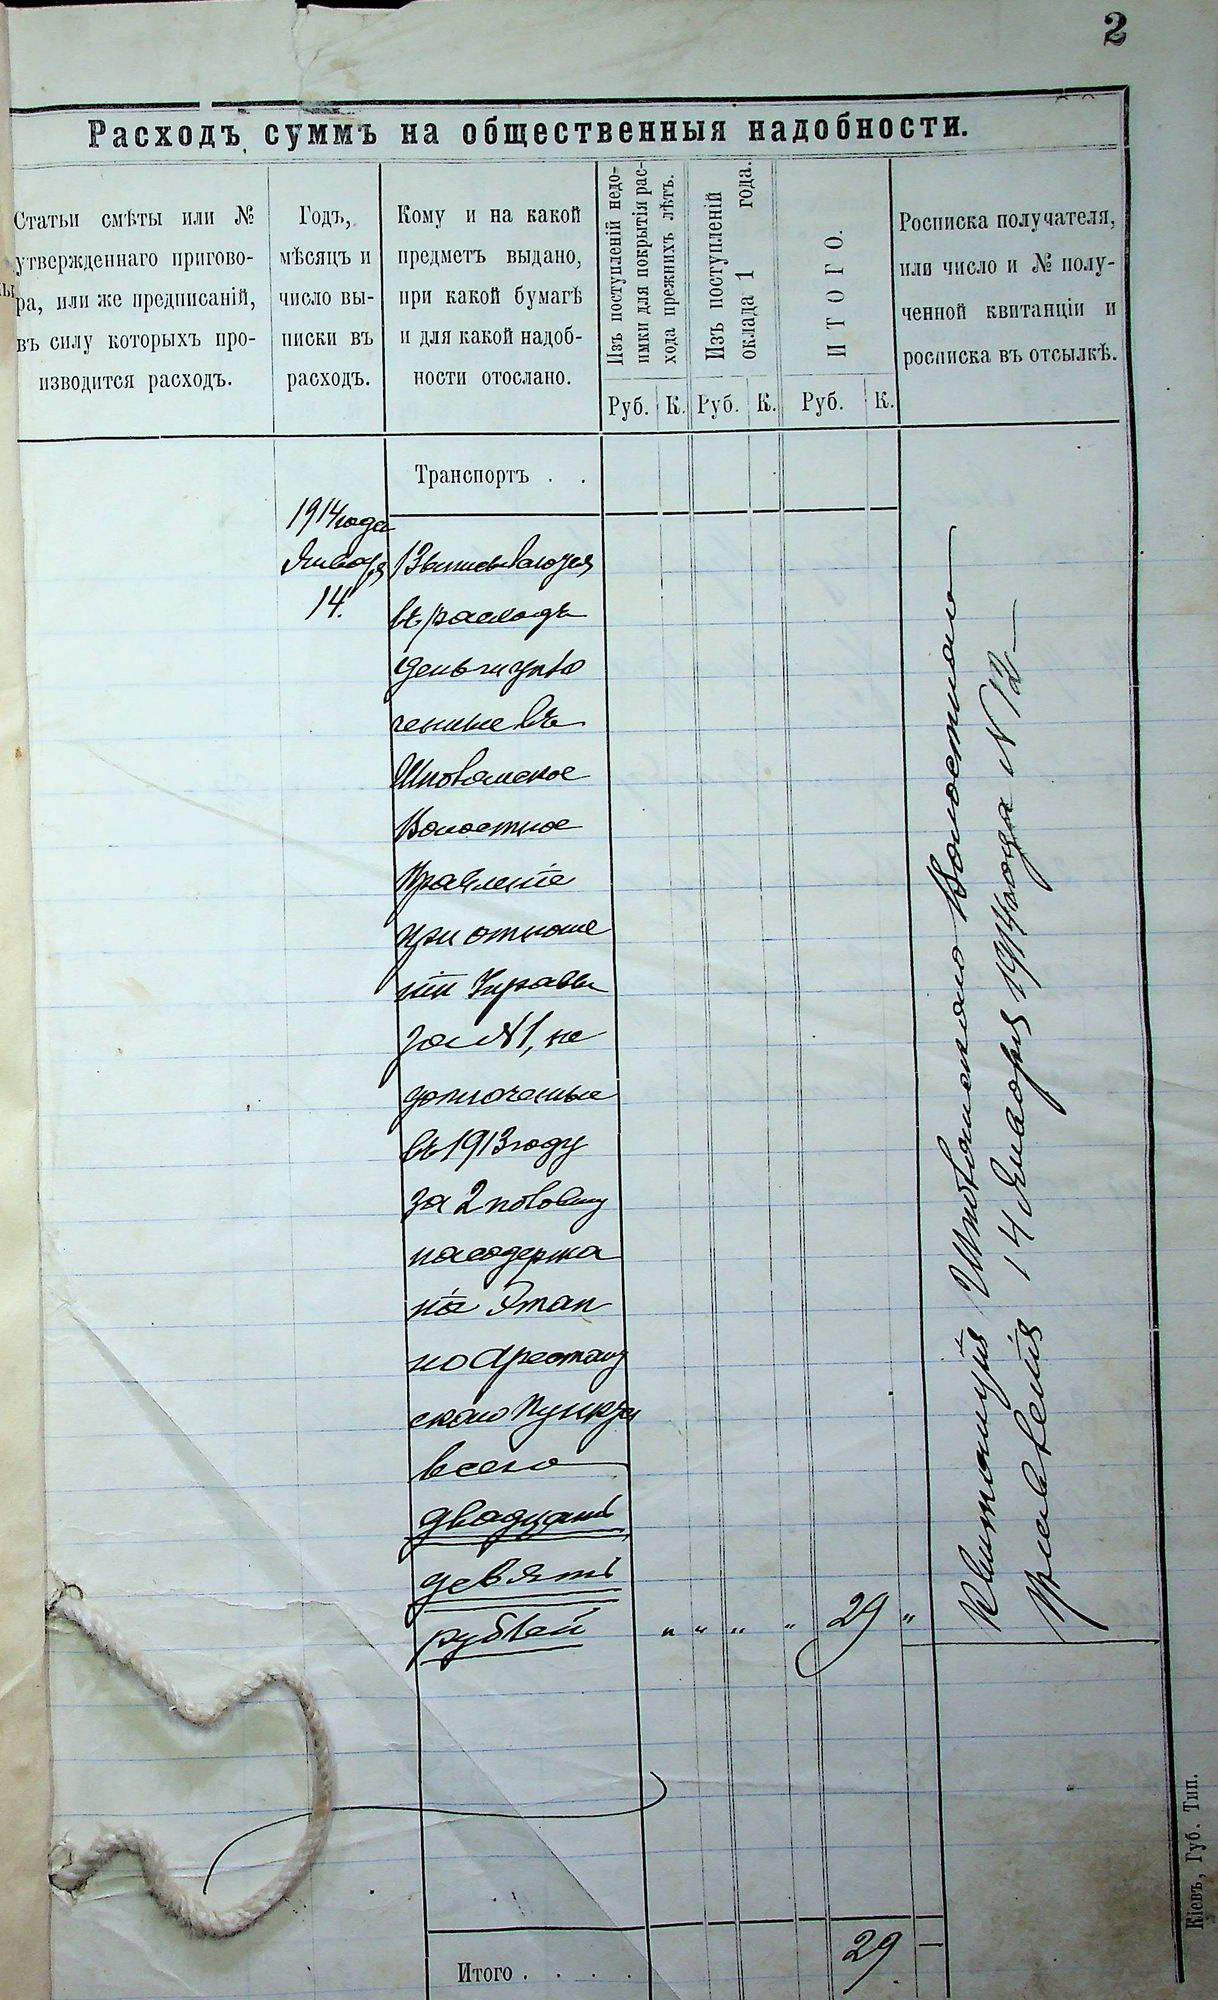 2
Расходъ суммъ на общественныя надобности.
Статьи смѣты или №
утвержденнаго пригово-
ра, или же предписаній,
въ силу которыхъ про-
изводится расходъ.
Годъ,
мѣсяцъ и
число вы-
писки въ
расходъ.
Кому и на какой
предметъ выдано,
при какой бумагѣ
и для какой надоб-
ности отослано.
Изъ поступленій недо-
имки для покрытія рас-
хода прежнихъ лѣтъ.
Изъ поступленій
оклада 1 года.
ИТОГО.
Росписка получателя,
или число и № полу-
ченной квитанціи и
росписка въ отсылкѣ.
Руб. К. Руб. К. Руб. К.
Транспортъ . .
1914 года
Января
14.
Выписываются
въ расходъ
деньги упло
ченные въ
Шповское
Волостное
Правленіе
при отноше
ніи Управы
за №1, не
доплоченные
въ 1913 году
за 2 половину
на содержа
ніе Этап
но Арестант
скаго Пункта
всего
двадцать
девять
рублей
" " " " 29 "
Квитанція Волостного
Правленія 14 Января 1914 года N 12
Итого . . . . 29 —
Кіевъ, Губ. Тип.